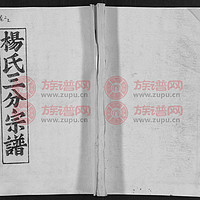 楊氏三分宗譜
族谱网
www.zupu.cn
族谱网
www.zupu.cn
族谱网
www.zupu.cn
族谱网
www.zupu.cn